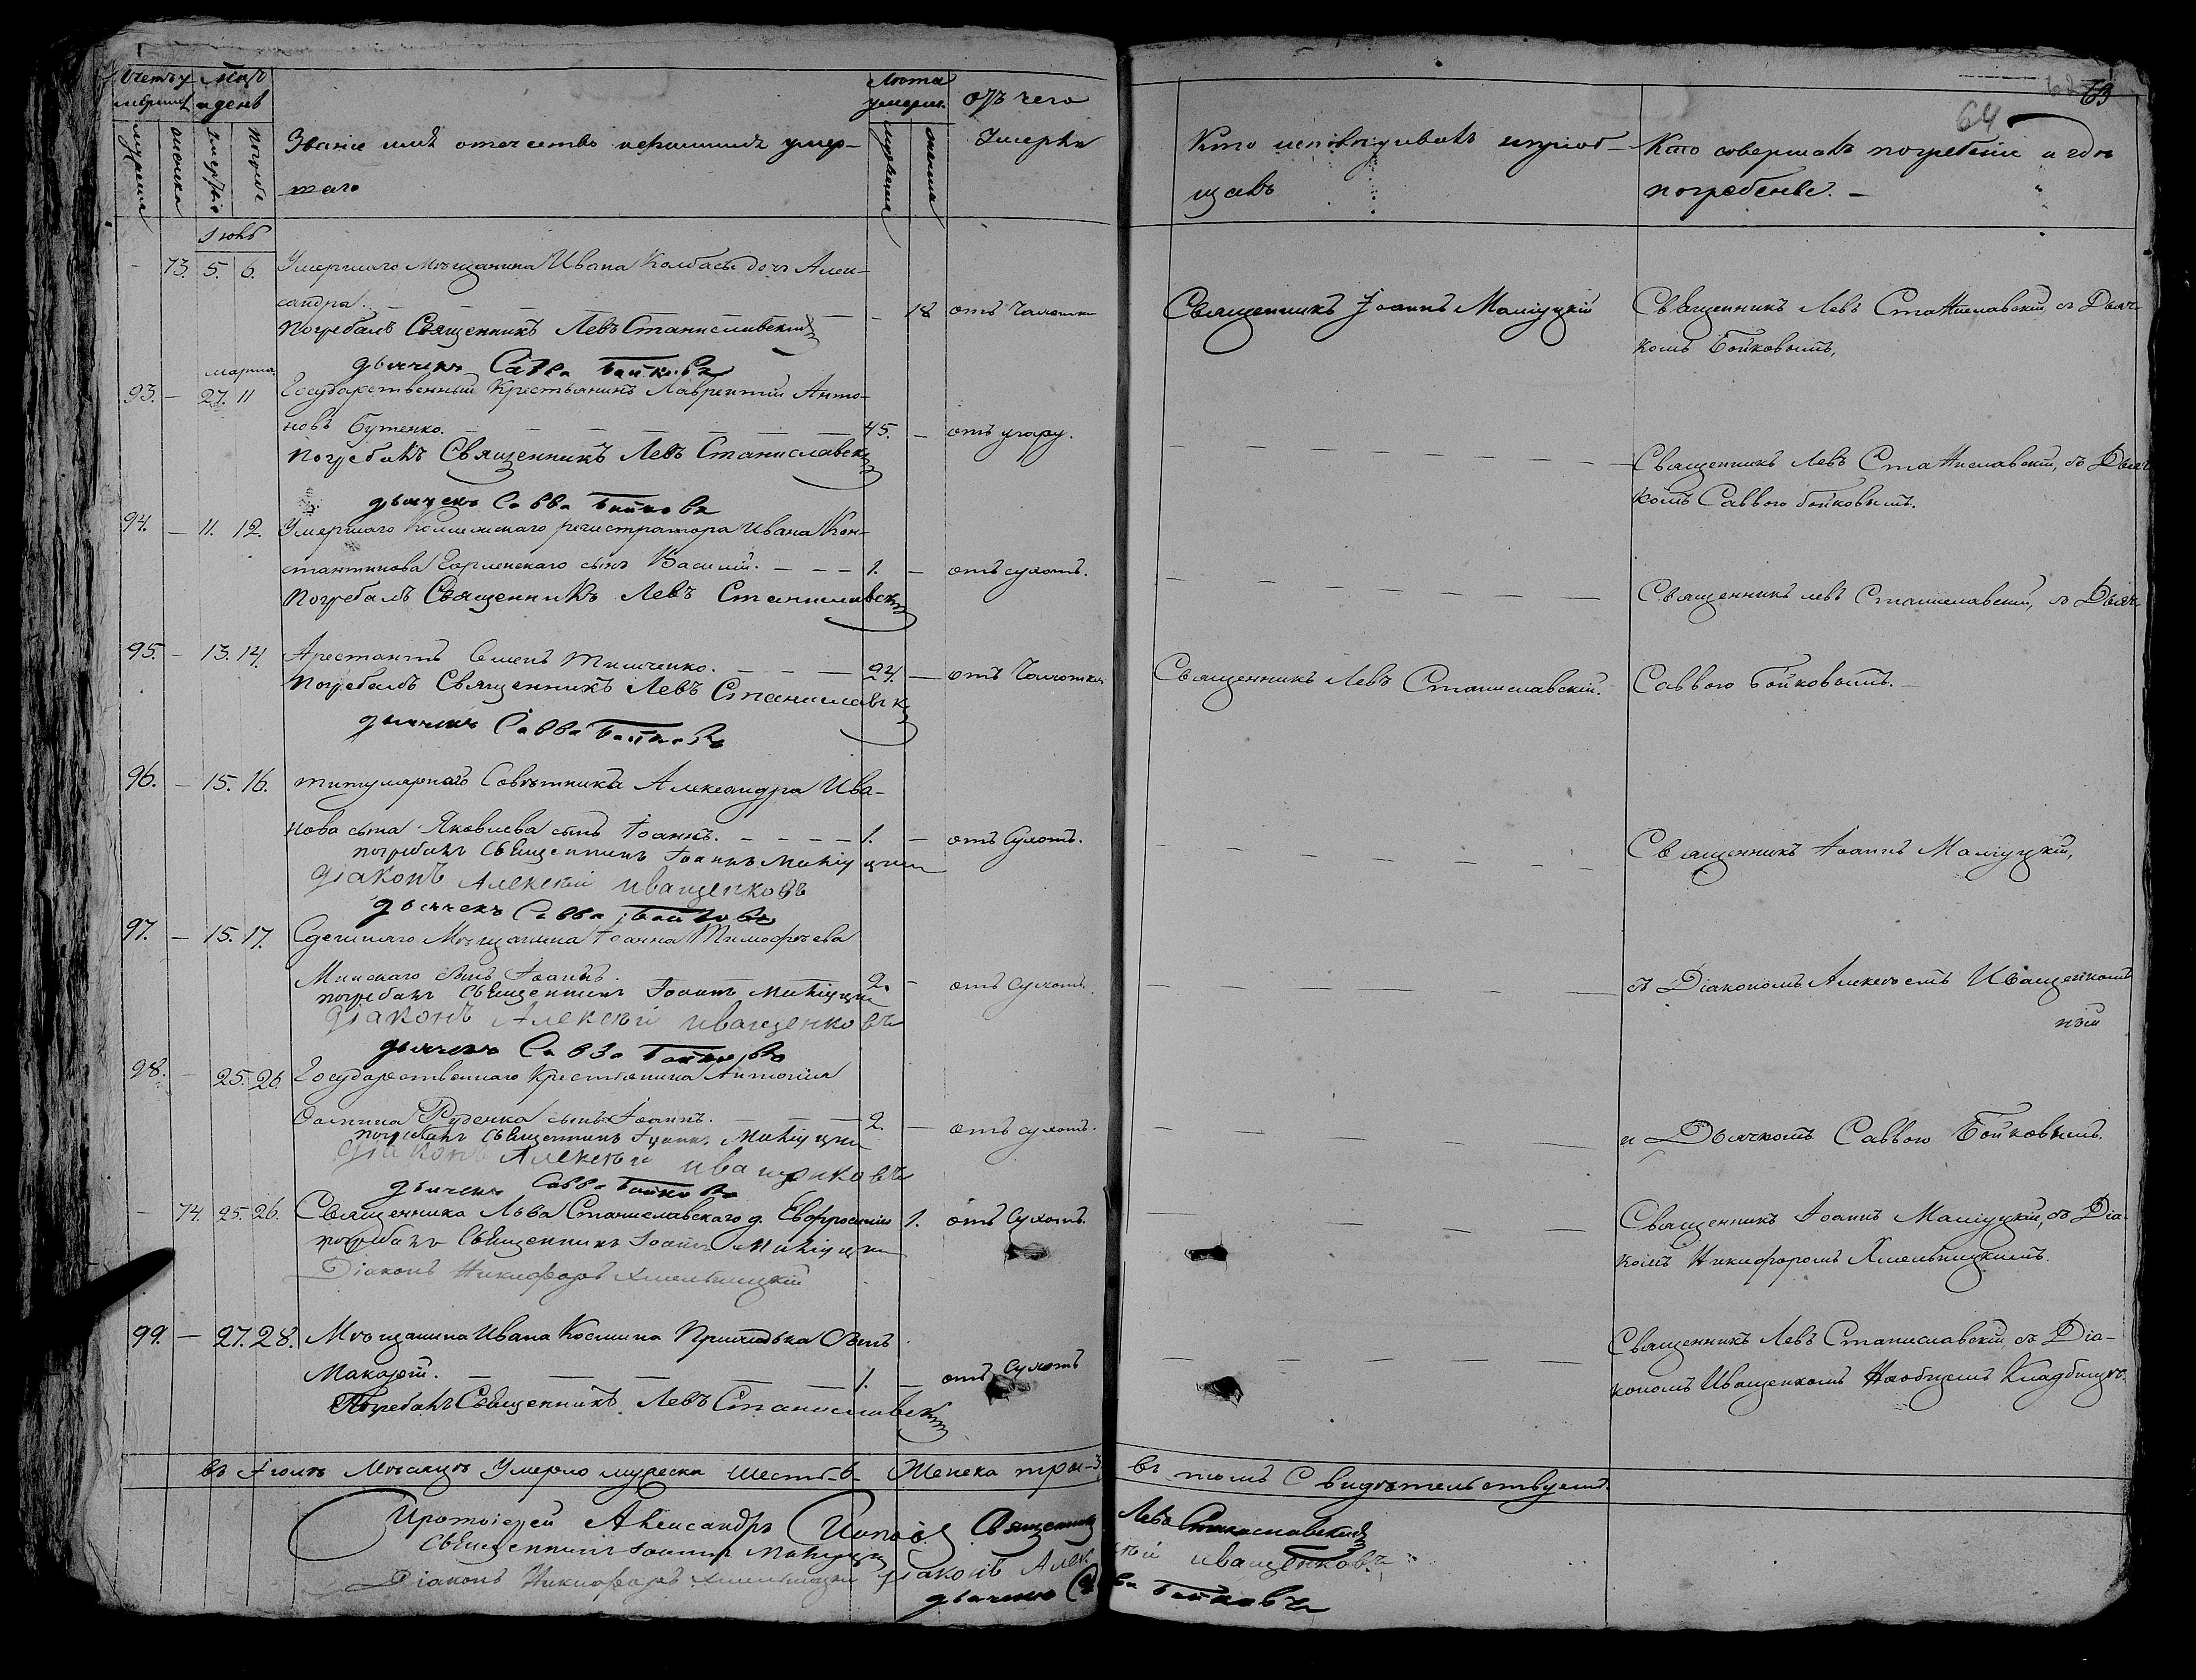 Счетъ умершихъ
Мцъ и день
Лѣта умерш.
отъ чего
Умерли
мужеска
женска
смерти
погреб.
Званіе имя отечество и фамилія умер-
шаго
мужеска
женска
Кто исповѣдывалъ и пріоб-
щалъ
Кто совершалъ погребеніе и гдѣ
погребены. –
63
64
Іюль
– 73. 5. 6. Умершаго Мѣщанина Ивана Колбасы дочь Алек-
сандра. – 18 отъ Чахотки
Священникъ Іоаннъ Маліуцкій
Священникъ Левъ Станиславскій, съ Дьяч-
комъ Бойковымъ,
Погребалъ Священникъ Левъ Станиславскій
дьячекъ Савва Бойковъ
марта
93. – 27. 11 Государственный Крестьянинъ Лаврентій Анто-
новъ Бутенко. 45. – отъ угару.
Священникъ Левъ Станиславскій, съ Дьяч-
комъ Саввою Бойковымъ.
Погребалъ Священникъ Левъ Станиславскій
дьячекъ Савва Бойковъ
94. – 11. 12. Умершаго Коллежскаго регистратора Ивана Кон-
стантинова сынъ Василій. – – – 1. – отъ сухотъ.
Священникъ Левъ Станиславскій, съ Дьяч-
Погребалъ Священникъ Левъ Станиславскій
95. – 13. 14. Арестантъ Семенъ Тимченко. – 24. – отъ Чахотки
Священникъ Левъ Станиславскій.
Саввою Бойковымъ.
Погребалъ Священникъ Левъ Станиславскій
дьячекъ Савва Бойковъ
96. – 15. 16. Титулярнаго Совѣтника Александра Ива-
нова сына Яковлева сынъ Іоаннъ. – – – – 1. – отъ Сухотъ.
Священникъ Іоаннъ Маліуцкій,
погребалъ Священникъ Іоаннъ Маліуцкій
Діаконъ Алексѣй Иващенковъ
дьячекъ Савва Бойковъ
97. – 15. 17. Сдешняго Мѣщанина Іоанна Тимофѣева
Минскаго сынъ Іоаннъ. 2. – отъ Сухотъ.
съ Діакономъ Алексѣемъ Иващенкомъ
погребалъ Священникъ Іоаннъ Маліуцкій
Діаконъ Алексѣй Иващенковъ
дьячекъ Савва Бойковъ
98. – 25. 26. Государственнаго Крестьянина Антонія
Руденка сынъ Іоаннъ. – 2. – отъ сухотъ.
и Дьячкомъ Саввою Бойковымъ.
погребалъ Священникъ Іоаннъ Маліуцкій
Діаконъ Алексѣй Иващенковъ
дьячекъ Савва Бойковъ
– 74. 25. 26. Священника Льва Станиславскаго д. Евфросинія 1. отъ Сухотъ.
Священникъ Іоаннъ Маліуцкій, съ Діа-
комъ Никифоромъ Хмельницкимъ.
погребалъ Священникъ Іоаннъ Маліуцкій
Діаконъ Никифоръ Хмельницкій
99. – 27. 28. Мѣщанина Ивана Космина сынъ
Макарій. – 1. – отъ Сухотъ
Священникъ Левъ Станиславскій, съ Діа-
кономъ Иващенкомъ На общемъ Кладбищѣ.
Погребалъ Священникъ Левъ Станиславскій
въ Іюлѣ Мѣсяцѣ Умерло мужеска шесть-6- Женска три-3. въ томъ Свидѣтельствуемъ.
Протоіерей Александръ Священникъ Левъ Станиславскій
Священникъ Іоаннъ Маліуцкій Діаконъ Алексѣй Иващенковъ
Діаконъ Никифоръ Хмельницкій
дьячекъ Савва Бойковъ